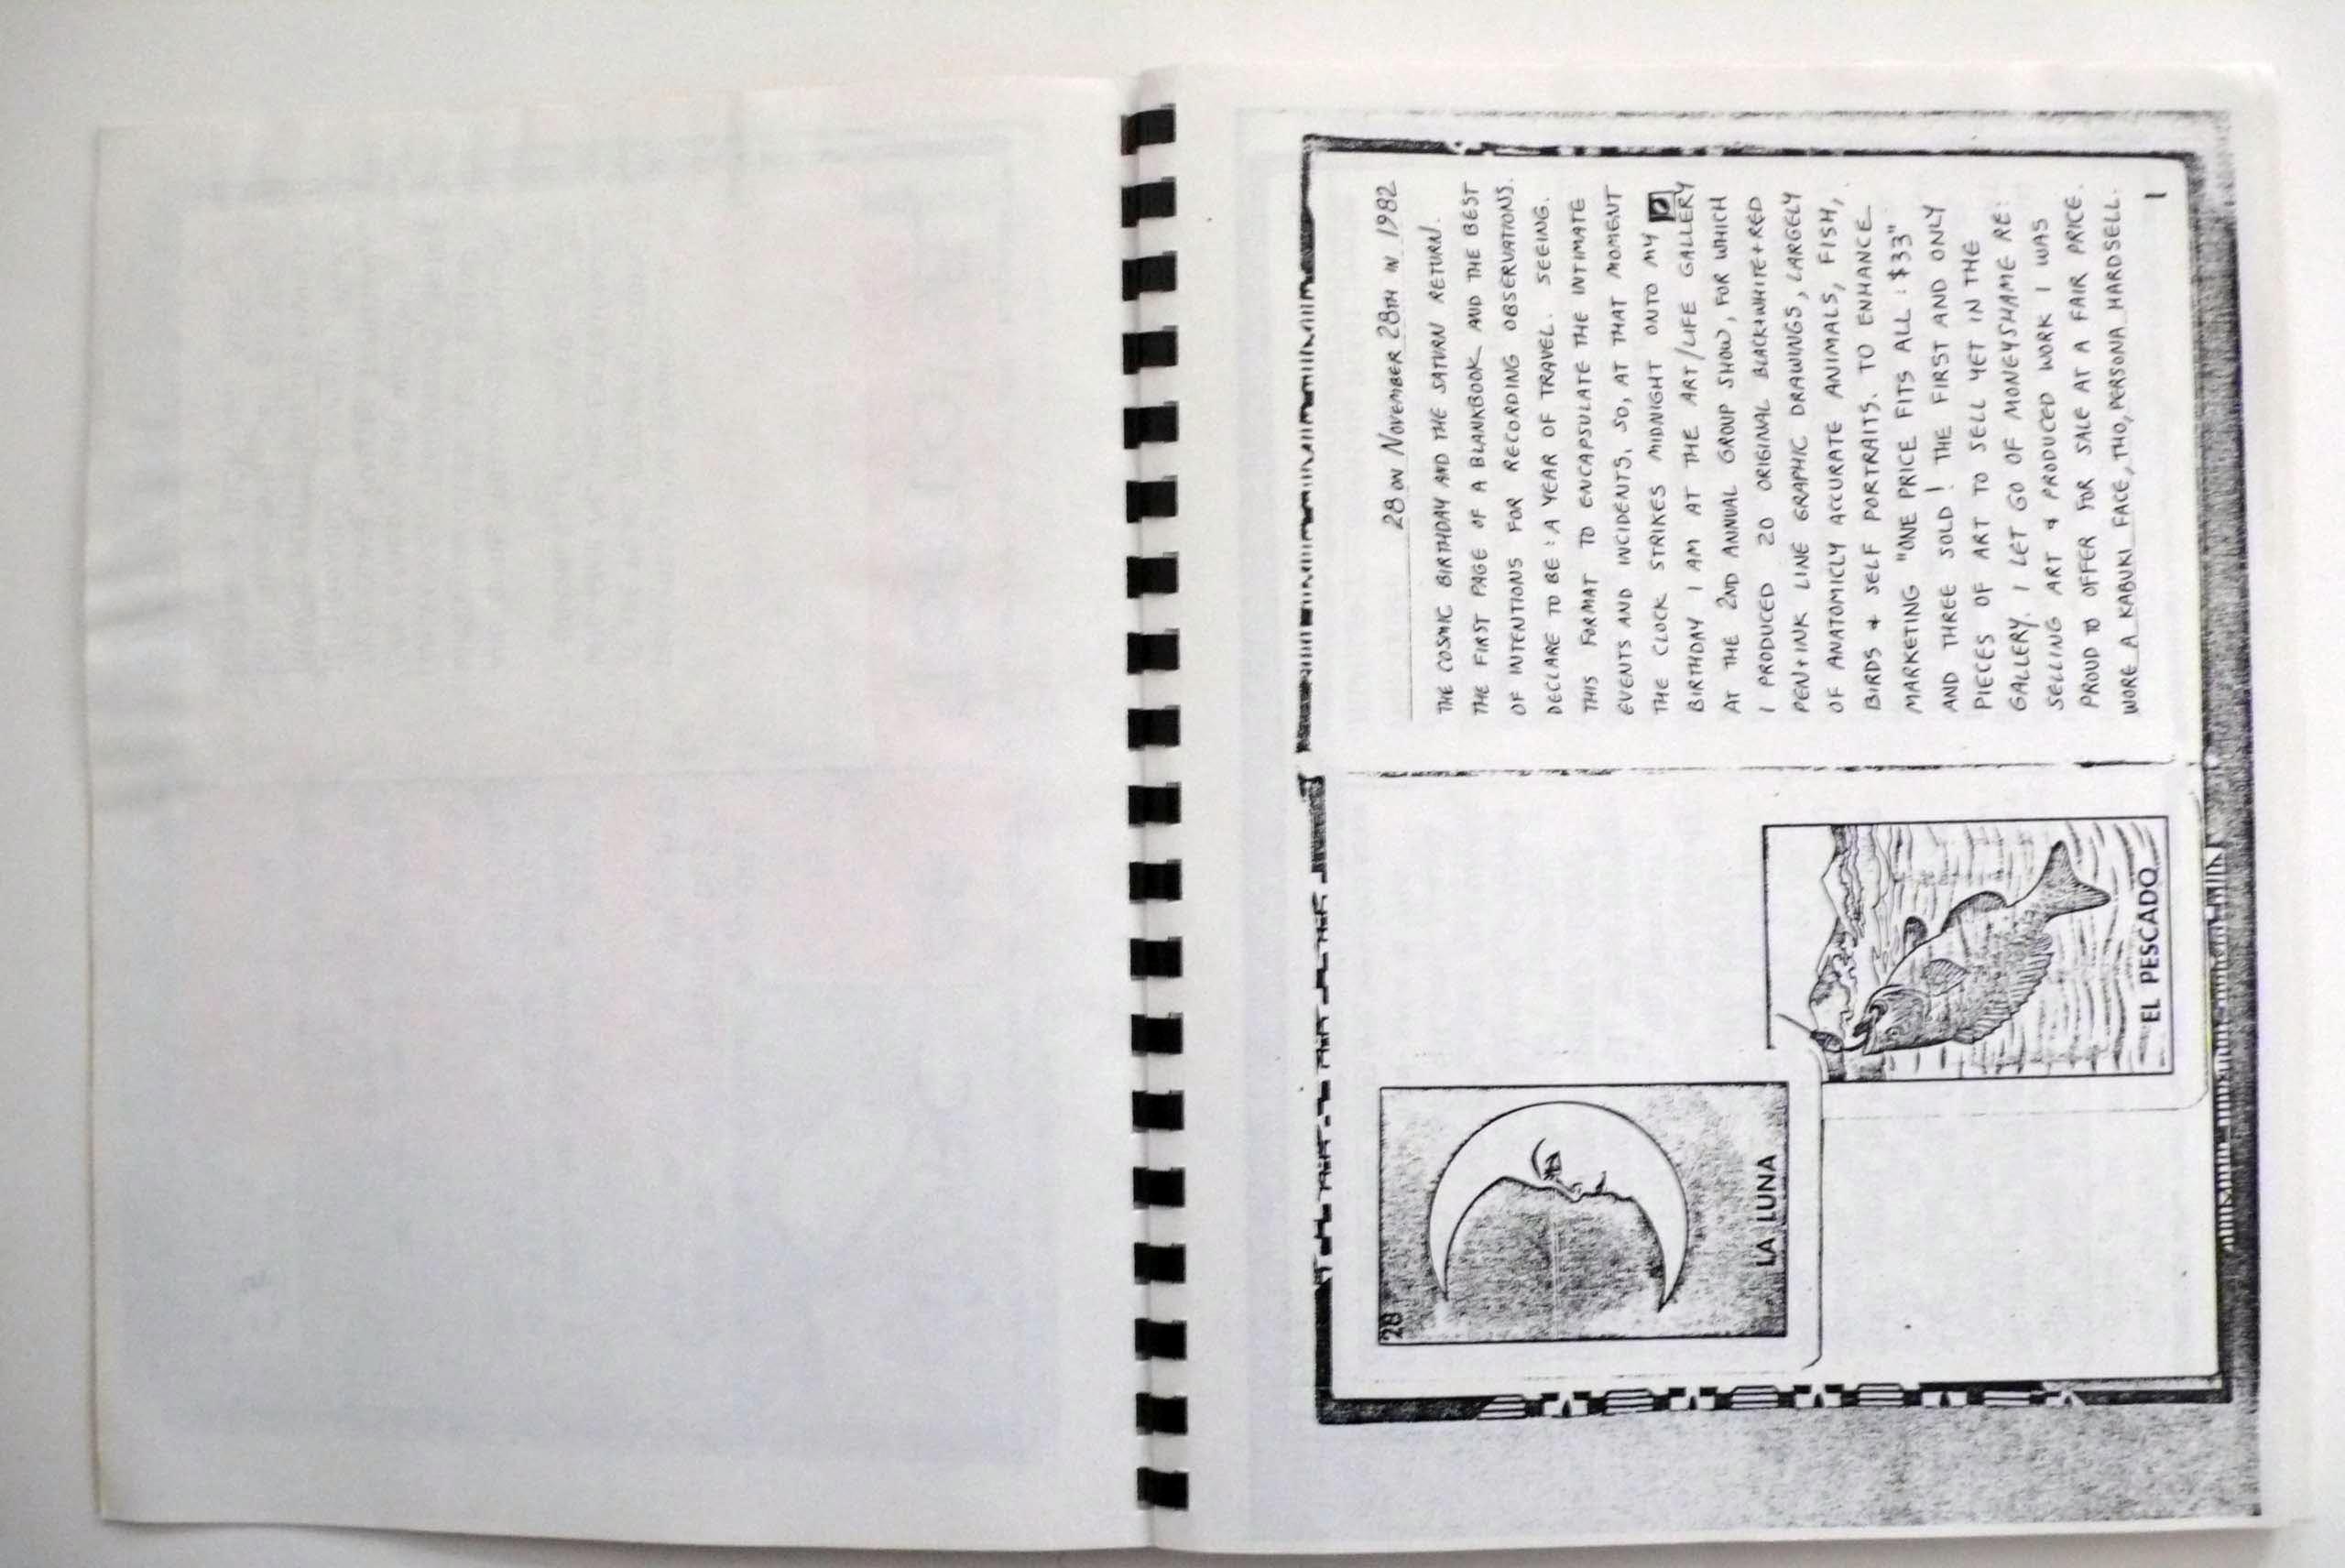 28
LA LUNA
EL PESCADO
28 ON NOVEMBER 28TH IN 1982
THE COSMIC BIRTHDAY AND THE SATURN RETURN.
THE FIRST PAGE OF A BLANKBOOK AND THE BEST
OF INTENTIONS FOR RECORDING OBSERVATIONS.
DECLARE TO BE: A YEAR OF TRAVEL. SEEING.
THIS FORMAT TO ENCAPSULATE THE INTIMATE
EVENTS AND INCIDENTS, SO, AT THAT MOMENT
THE CLOCK STRIKES MIDNIGHT ONTO MY
BIRTHDAY I AM AT THE ART/LIFE GALLERY
AT THE 2ND ANNUAL GROUP SHOW, FOR WHICH
I PRODUCED 20 ORIGINAL BLACK+WHITE+RED
PEN+INK LINE GRAPHIC DRAWINGS, LARGELY
OF ANATOMICLY ACCURATE ANIMALS, FISH,
BIRDS & SELF PORTRAITS. TO ENHANCE
MARKETING "ONE PRICE FITS ALL: $33"
AND THREE SOLD! THE FIRST AND ONLY
PIECES OF ART TO SELL YET IN THE
GALLERY. I LET GO OF MONEYSHAME RE:
SELLING ART & PRODUCED WORK I WAS
PROUD TO OFFER FOR SALE AT A FAIR PRICE.
WORE A KABUKI FACE, THO, PERSONA HARDSELL.
1